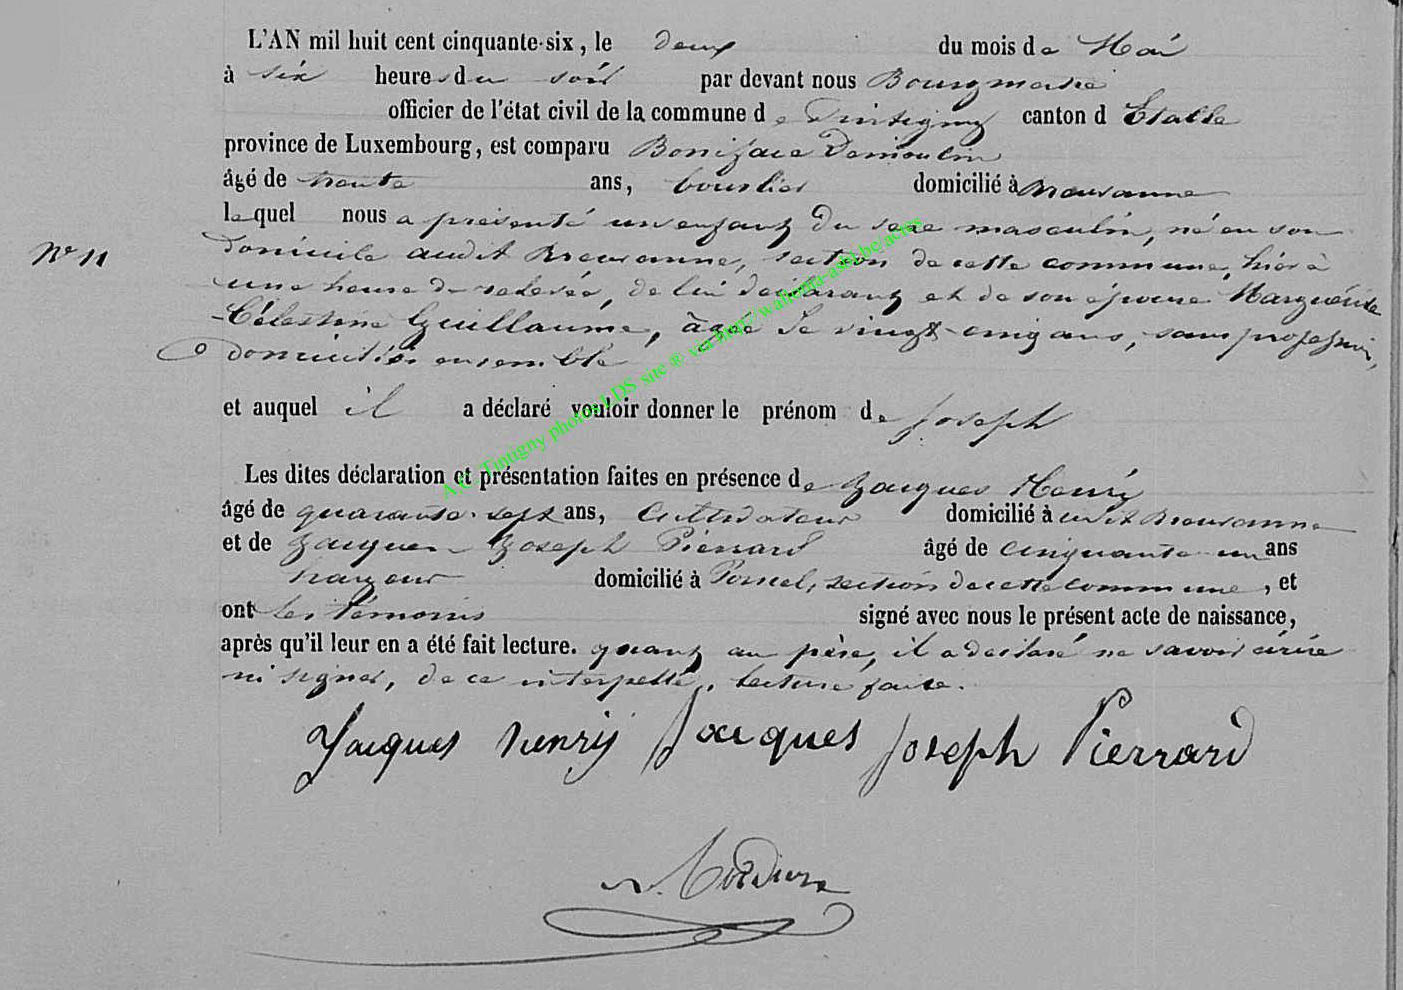 L'AN mil huit cent cinquante-six, le deux du mois de Mai
à six heures du soir par devant nous Bourgmestre
officier de l'état civil de la commune de Tintigny canton d'Etalle
province de Luxembourg, est comparu Boniface Demoulin
âgé de trente ans, bourlier domicilié à Breuvanne
lequel nous a présenté un enfant du sexe masculin, né en son
N° 11
domicile audit Breuvanne, section de cette commune, hier à
une heure de relevée, de lui déclarant et de son épouse Marguérite
Célestine Guillaume, âgée de vingt-cinq ans, sans profession,
domiciliés ensemble
et auquel il a déclaré vouloir donner le prénom de Joseph
Les dites déclaration et présentation faites en présence de Jacques Henry
âgé de quarante-sept ans, cultivateur domicilié à audit Breuvanne
et de Jacques Joseph Pierrard âgé de cinquante un ans
domicilié à Poncel, section de cette commune, et
ont les témoins signé avec nous le présent acte de naissance,
après qu'il leur en a été fait lecture. quant au père, il a déclaré ne savoir écrire
ni signer, de ce interpellé, lecture faite.
Jacques henry Jacques Joseph Pierrard
A.C. Tintigny photos LDS site ® via http://wallonia-asbl.be/actes